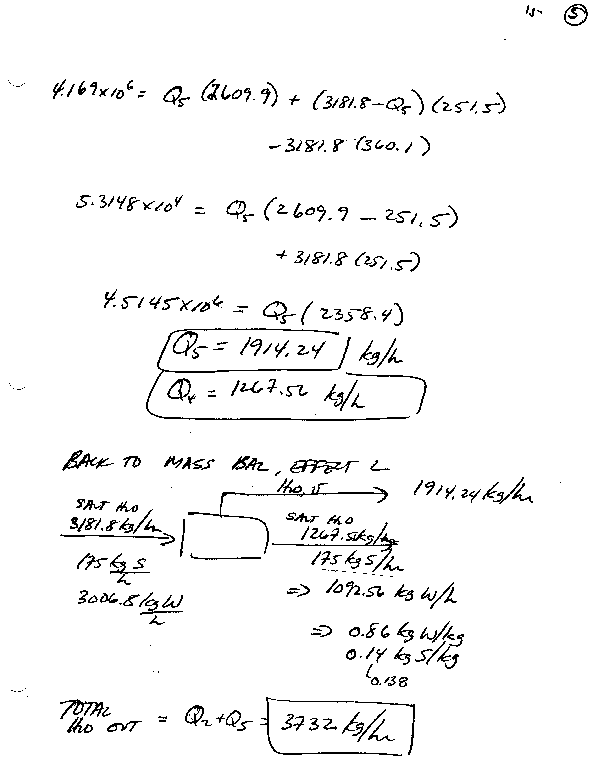 15- 5
4.169x10⁶ = Q₅ (2609.9) + (3181.8-Q₅) (251.5)
-3181.8 (360.1)
5.3148x10⁴ = Q₅ (2609.9 - 251.5)
+ 3181.8 (251.5)
4.5145x10⁶ = Q₅ (2358.4)
Q₅ = 1914.24 kg/h
Q₄ = 1267.56 kg/h
BACK TO MASS BAL, EFFECT 2
H₂O, V 1914.24 kg/hr
SALT H₂O SALT H₂O
3181.8 kg/hr 1267.56 kg/hr
175 kg S/h 175 kg S/hr
3006.8 kg W/h => 1092.56 kg W/h
=> 0.86 kg W/kg
0.14 kg S/kg
0.138
TOTAL H₂O OUT = Q₂+Q₅ = 3732 kg/hr